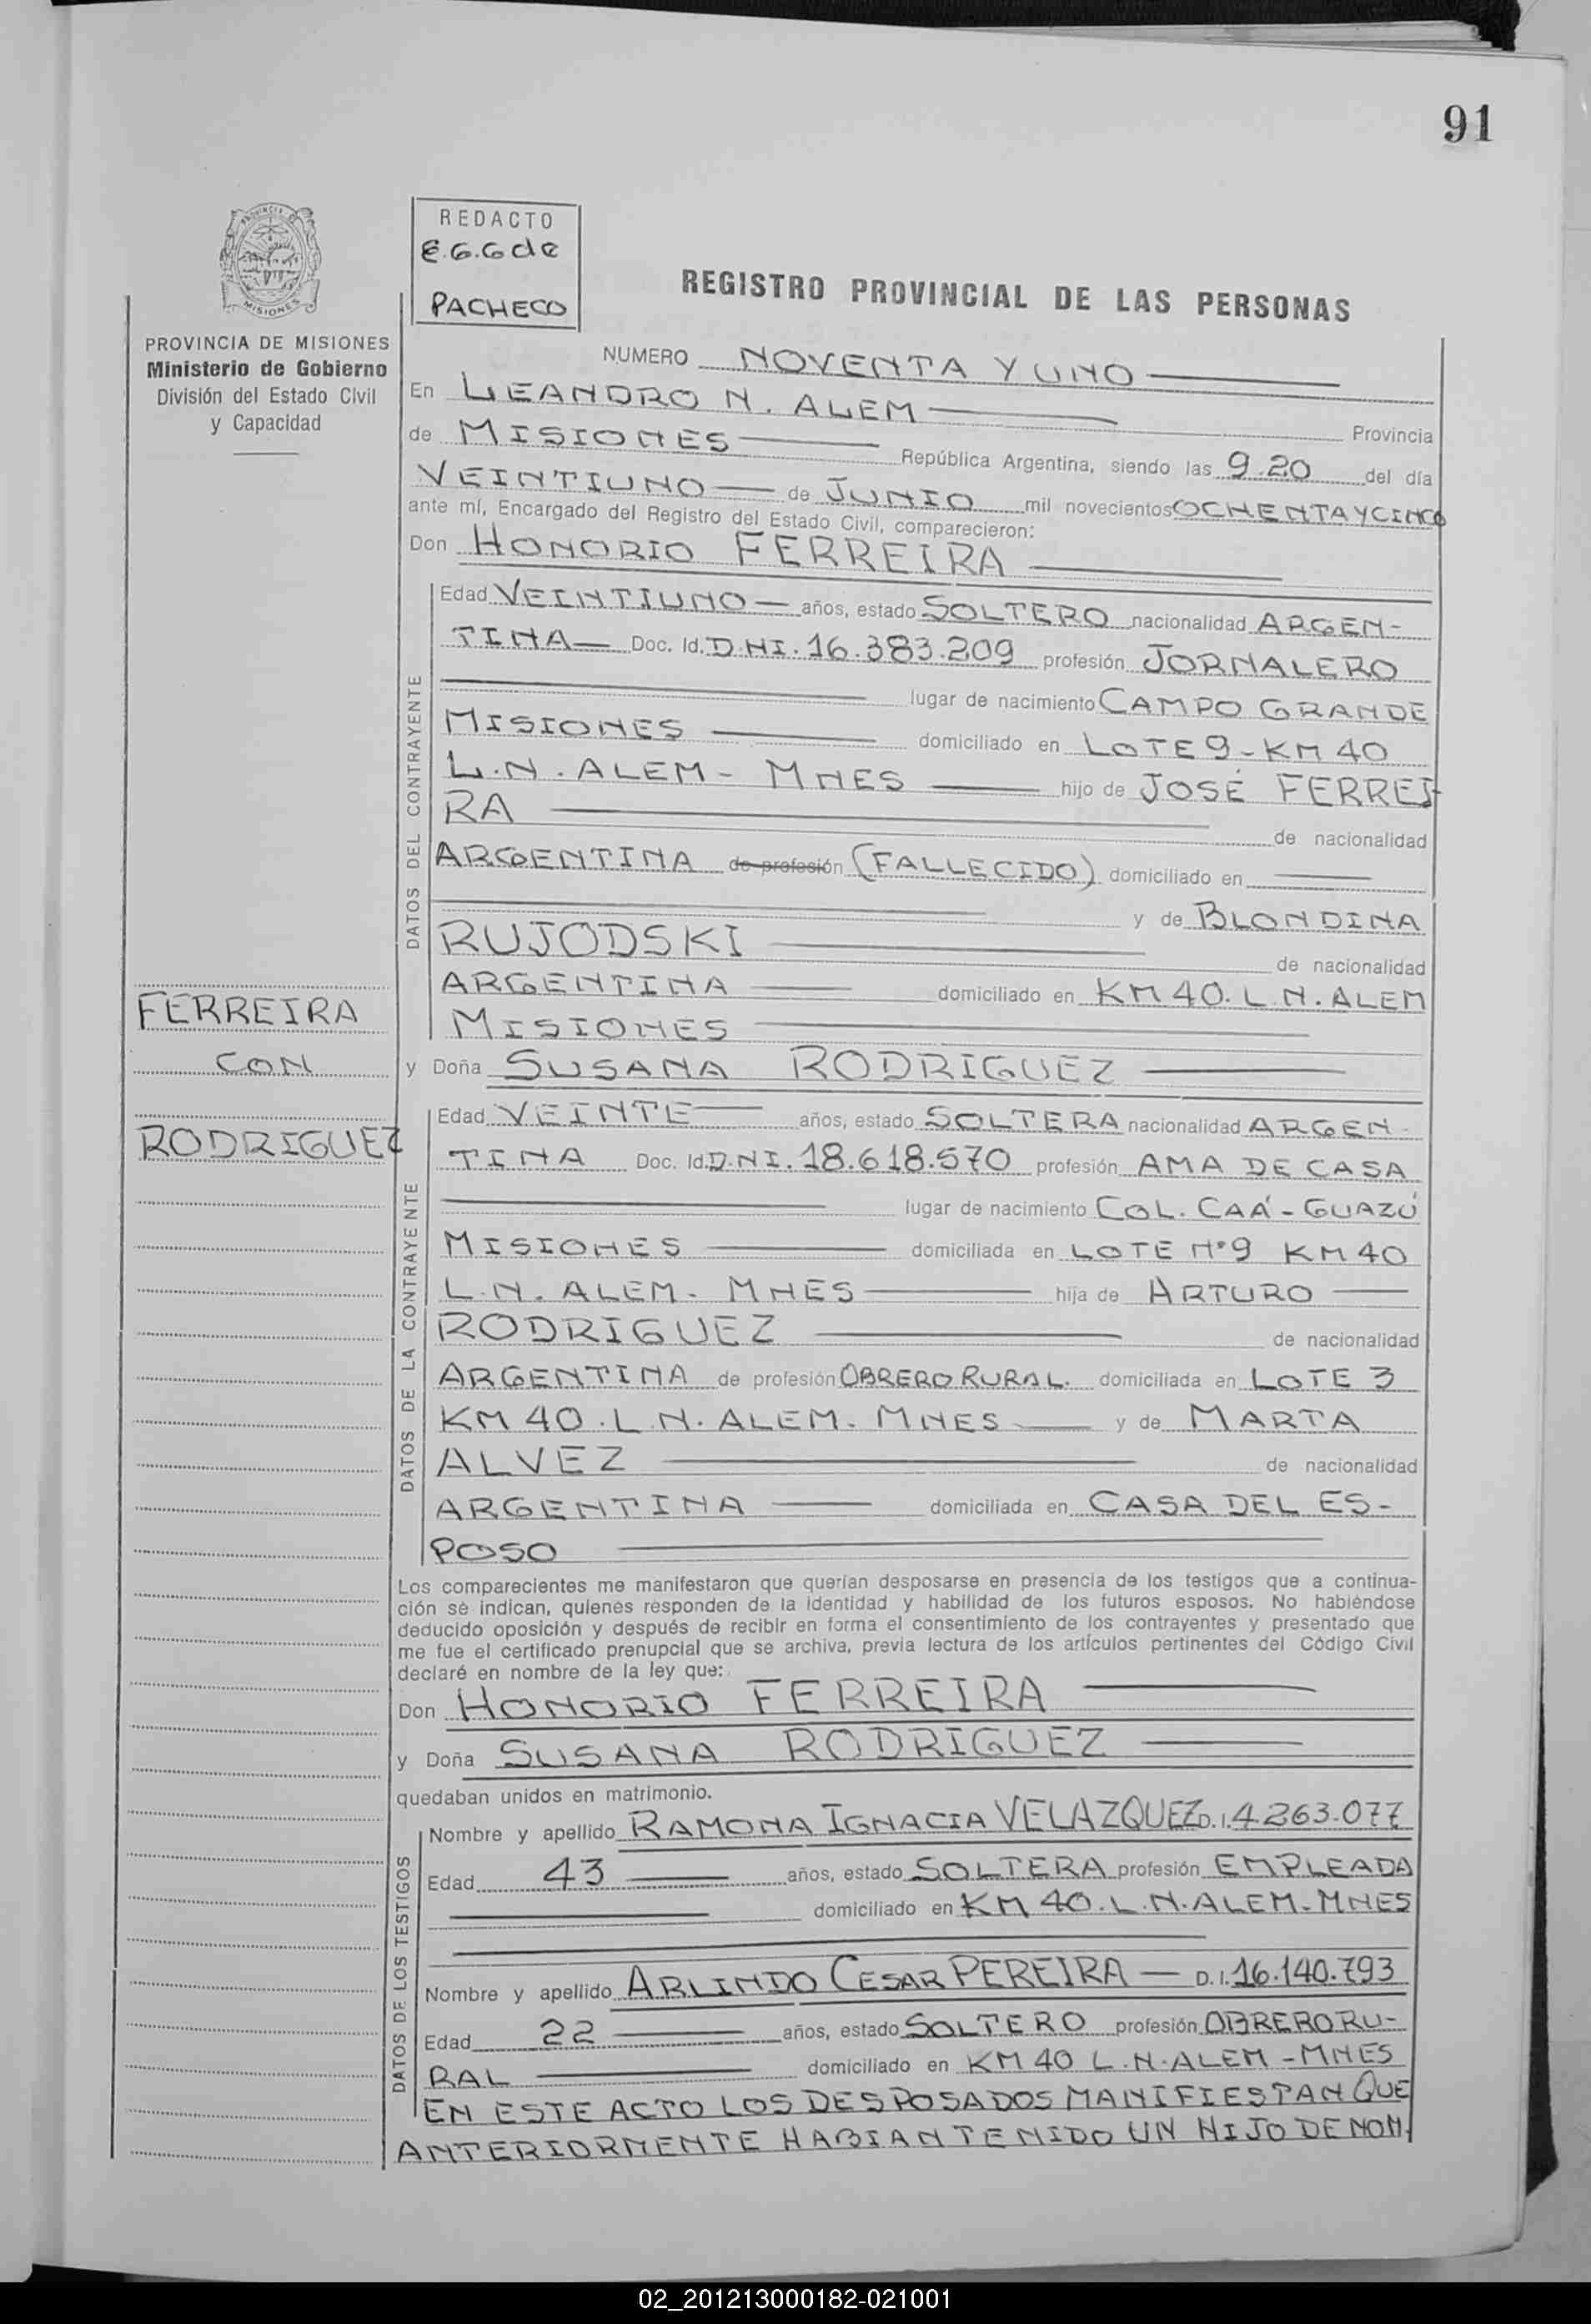 91
REDACTO
E.G.G de
PACHECO
REGISTRO PROVINCIAL DE LAS PERSONAS
MISIONES
PROVINCIA DE MISIONES
Ministerio de Gobierno
División del Estado Civil
y Capacidad
NUMERO NOVENTA Y UNO
En LEANDRO N. ALEM
Provincia
de MISIONES República Argentina, siendo las 9.20 del día
VEINTIUNO de JUNIO mil novecientos OCHENTA Y CINCO
ante mí, Encargado del Registro del Estado Civil, comparecieron:
Don HONORIO FERREIRA
DATOS DEL CONTRAYENTE
Edad VEINTIUNO años, estado SOLTERO nacionalidad ARGEN-
TINA Doc. Id. D.NI. 16.383.209 profesión JORNALERO
lugar de nacimiento CAMPO GRANDE
MISIONES domiciliado en LOTE 9-KM 40
L.N. ALEM - MNES hijo de JOSÉ FERREI
RA de nacionalidad
ARGENTINA de profesión (FALLECIDO) domiciliado en
y de BLONDINA
RUJODSKI de nacionalidad
ARGENTINA domiciliado en KM 40. L.N. ALEM
MISIONES
FERREIRA
CON
RODRIGUEZ
y Doña SUSANA RODRIGUEZ
DATOS DE LA CONTRAYENTE
Edad VEINTE años, estado SOLTERA nacionalidad ARGEN-
TINA Doc. Id. D.NI. 18.618.570 profesión AMA DE CASA
lugar de nacimiento COL. CAÁ-GUAZÚ
MISIONES domiciliada en LOTE Nº9 KM 40
L.N. ALEM. MNES hija de ARTURO
RODRIGUEZ de nacionalidad
ARGENTINA de profesión OBRERO RURAL. domiciliada en LOTE 3
KM 40. L.N. ALEM. MNES y de MARTA
ALVEZ de nacionalidad
ARGENTINA domiciliada en CASA DEL ES-
POSO
Los comparecientes me manifestaron que querían desposarse en presencia de los testigos que a continua-
ción se indican, quienes responden de la identidad y habilidad de los futuros esposos. No habiéndose
deducido oposición y después de recibir en forma el consentimiento de los contrayentes y presentado que
me fue el certificado prenupcial que se archiva, previa lectura de los artículos pertinentes del Código Civil
declaré en nombre de la ley que:
Don HONORIO FERREIRA
y Doña SUSANA RODRIGUEZ
quedaban unidos en matrimonio.
DATOS DE LOS TESTIGOS
Nombre y apellido RAMONA IGNACIA VELAZQUEZ D.I. 4.263.077
Edad 43 años, estado SOLTERA profesión EMPLEADA
domiciliado en KM 40. L.N. ALEM. MNES
Nombre y apellido ARLINDO CESAR PEREIRA — D.I. 16.140.793
Edad 22 años, estado SOLTERO profesión OBRERO RU-
RAL domiciliado en KM 40 L.N. ALEM - MNES
EN ESTE ACTO LOS DESPOSADOS MANIFIESTAN QUE
ANTERIORMENTE HABIAN TENIDO UN HIJO DE NOM
02_201213000182-021001